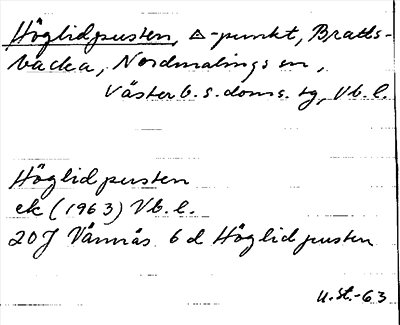 Höglidpusten, △-punkt, Bratts-
backa, Nordmalings sn,
Västerb. s. doms. tg, Vb. l.
Höglidpusten
ek (1963) Vb. l.
20J Vännäs 6d Höglidpusten
U.St.-63